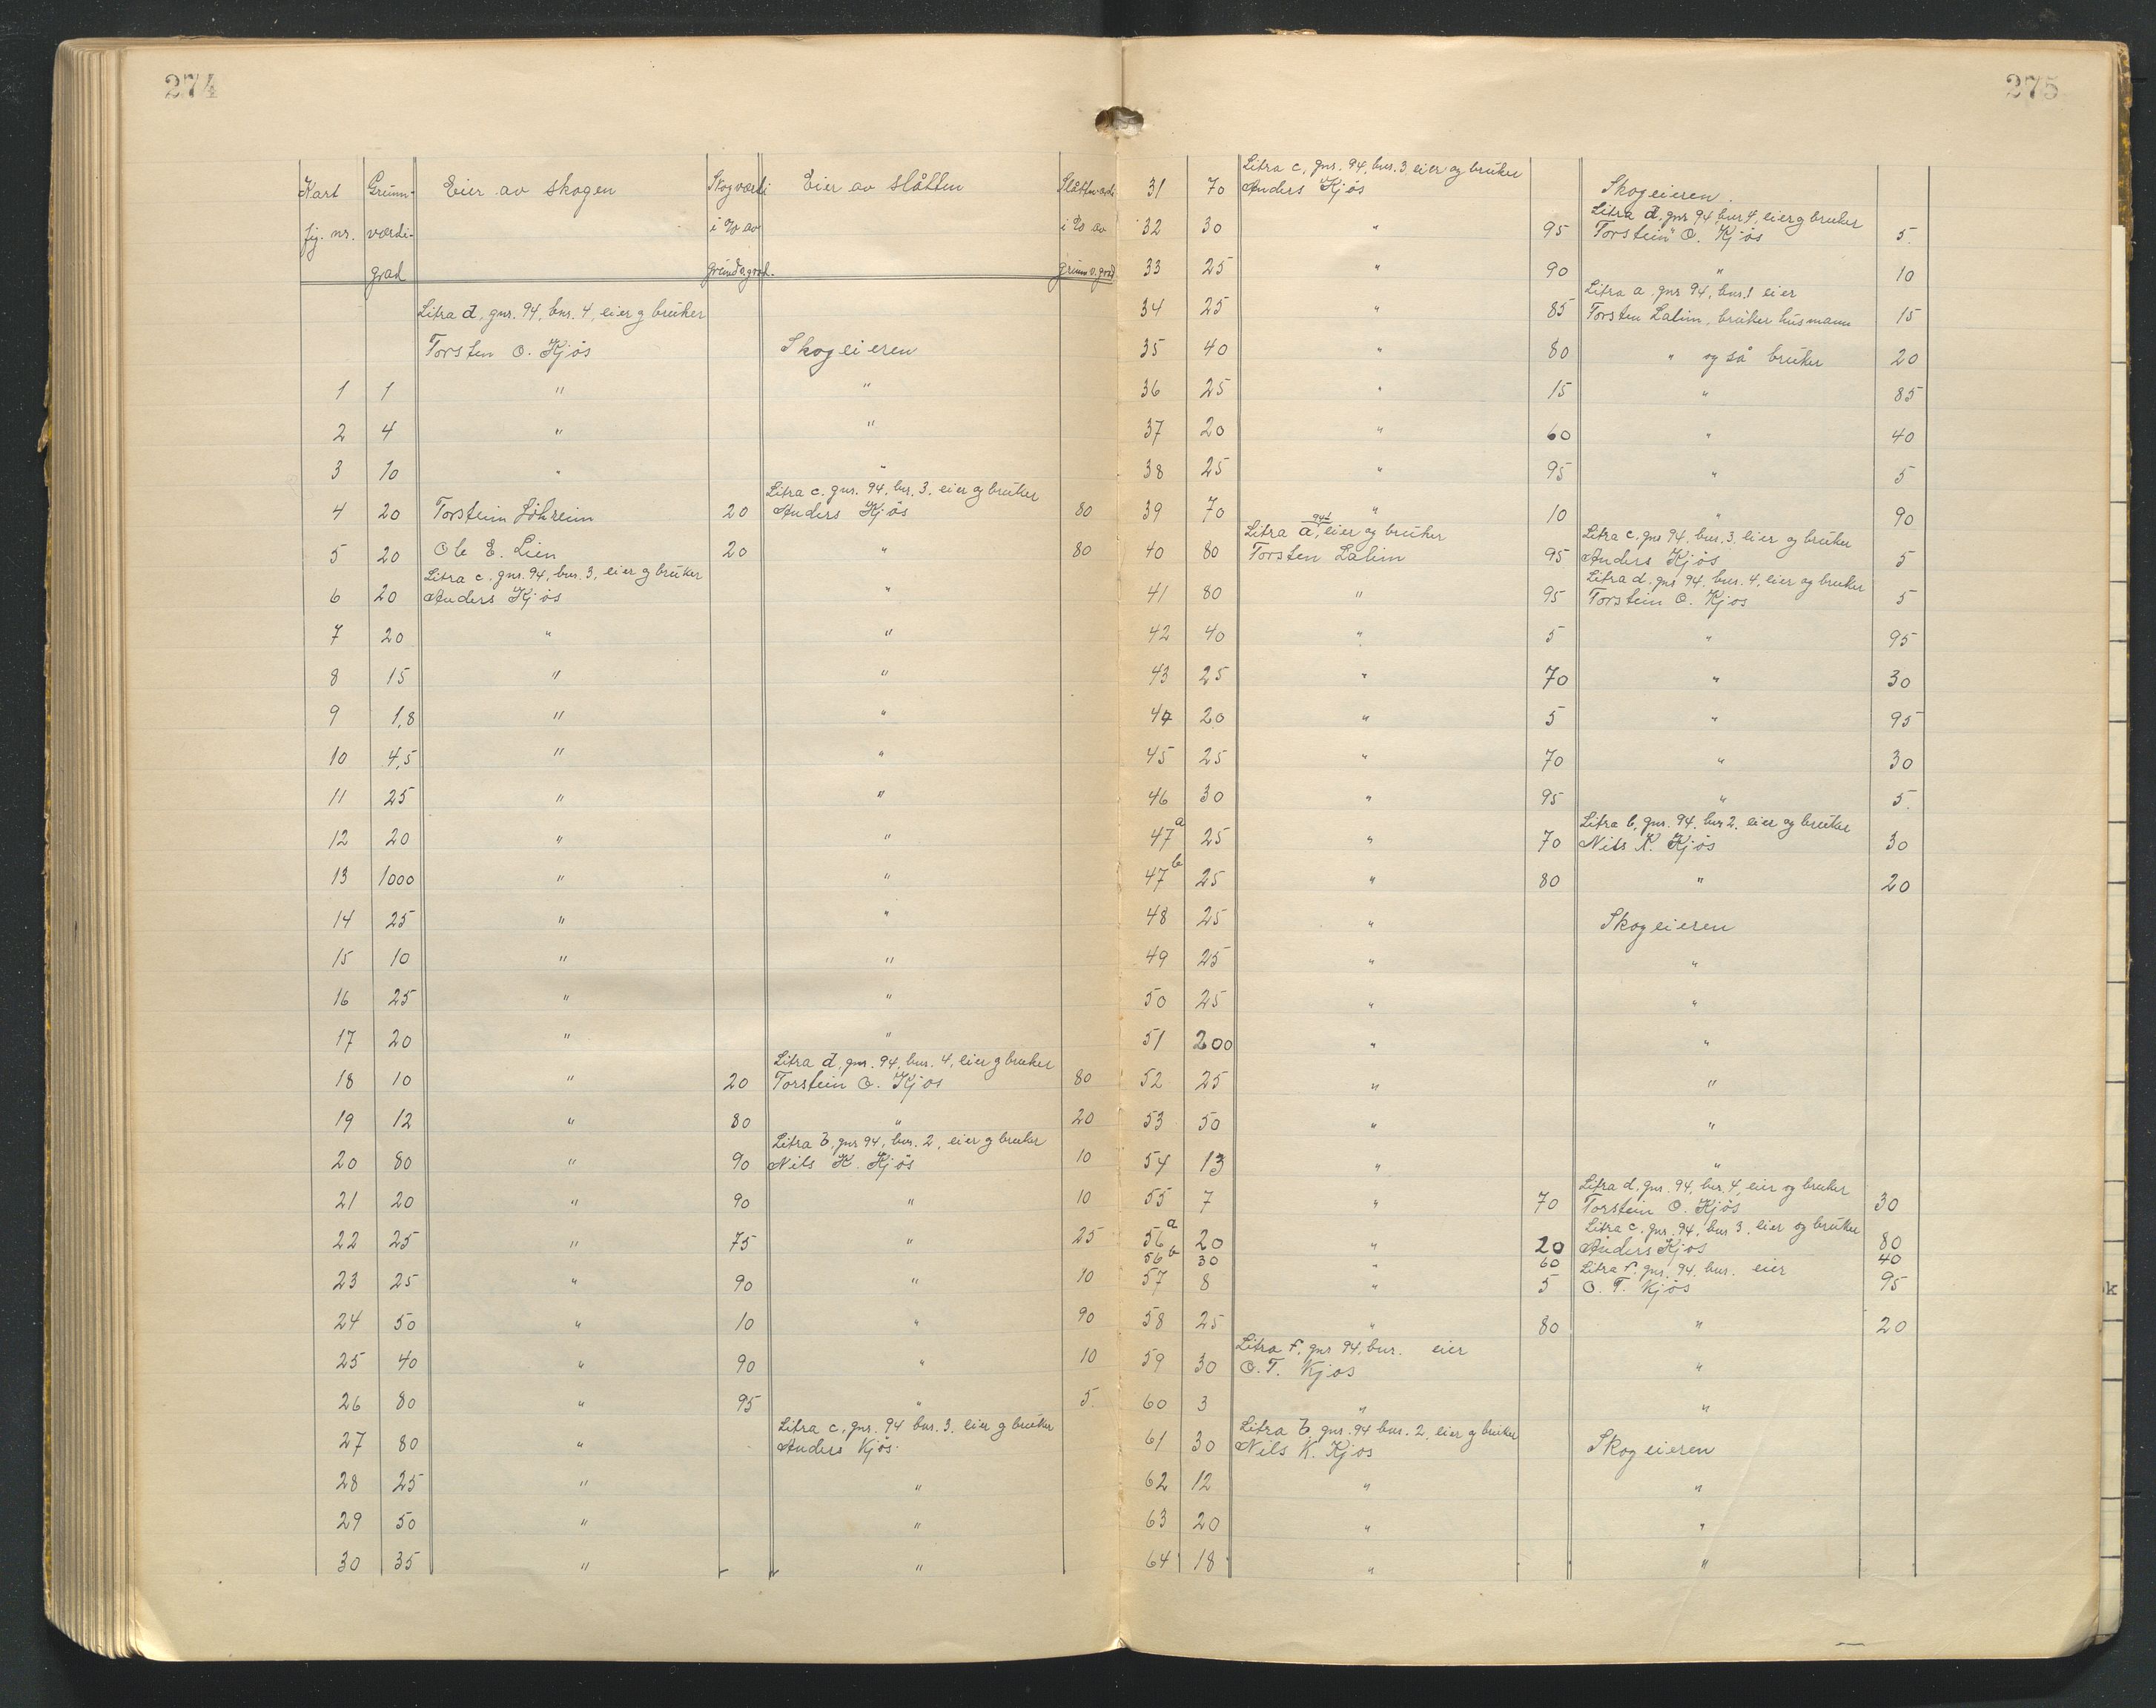 274
Kart Grunn- Eier av skogen Skogværdi Eier av slåtten Slåtteværdi
fig. nr. værdi- i % av i % av
grad grundv.grad. grunnv.grad
Litra d, gnr. 94, bnr. 4, eier og bruker
Torsten O. Kjøs Skogeieren
1 1 " "
2 4 " "
3 10 " "
Litra c. gnr. 94, bnr. 3, eier og bruker
4 20 Torstein 20 Anders Kjös 80
5 20 Ole E. Lien 20 " 80
Litra c. gnr. 94, bnr. 3, eier og bruker
6 20 Anders Kjös "
7 20 " "
8 15 " "
9 1,8 " "
10 4,5 " "
11 25 " "
12 20 " "
13 1000 " "
14 25 " "
15 10 " "
16 25 " "
17 20 " "
Litra d, gnr. 94, bnr. 4, eier og bruker
18 10 " 20 Torstein O. Kjös 80
19 12 " 80 " 20
Litra b, gnr 94, bnr. 2, eier og bruker
20 80 " 90 Nils K. Kjös 10
21 20 " 90 " 10
22 25 " 75 " 25
23 25 " 90 " 10
24 50 " 10 " 90
25 40 " 90 " 10
26 80 " 95 " 5.
Litra c, gnr. 94 bnr. 3, eier og bruker
27 80 " Anders Kjös.
28 25 " "
29 50 " "
30 35 " "
275
Litra c, gnr. 94, bnr. 3 eier og bruker
31 70 Anders Kjös Skogeieren.
Litra d. gnr 94 bnr 4, eier og bruker
32 30 " 95 Torstein O. Kjös 5.
33 25 " 90 " 10
Litra a. gnr 94, bnr. 1 eier
34 25 " 85 Torsten Lalim, bruker husmann 15
35 40 " 80 " og så bruker 20
36 25 " 15 " 85
37 20 " 60 " 40
38 25 " 95 " 5
39 70 " 10 " 90
Litra a, 94/1 eier og bruker Litra c, gnr 94. bnr. 3. eier og bruker
40 80 Torsten Lalim 95 Anders Kjös 5
Litra d. gnr 94. bnr. 4, eier og bruker
41 80 " 95 Torstein O. Kjos 5
42 40 " 5 " 95
43 25 " 70 " 30
44 20 " 5 " 95
45 25 " 70 " 30
46 30 " 95 " 5.
Litra b, gnr. 94. bnr 2. eier og bruker
47a 25 " 70 Nils K. Kjös 30
47b 25 " 80 " 20
48 25 " Skogeieren
49 25 " "
50 25 " "
51 200 " "
52 25 " "
53 50 " "
54 13 " "
Litra d. gnr. 94. bnr. 4, eier og bruker
55 7 " 70 Torstein O. Kjös 30
Litra c. gnr. 94, bnr 3. eier og bruker
56a 20 " 20 Anders Kjos 80
56b 30 " 60 Litra f. gnr. 94. bnr. eier 40
57 8 " 5 O. T. Kjös 95
58 25 " 80 " 20
Litra f, gnr 94, bnr. eier
59 30 O. T. Kjos "
60 3 " "
Litra b. gnr. 94 bnr. 2, eier og bruker
61 30 Nils K. Kjos Skogeieren
62 12 " "
63 20 " "
64 18 " "